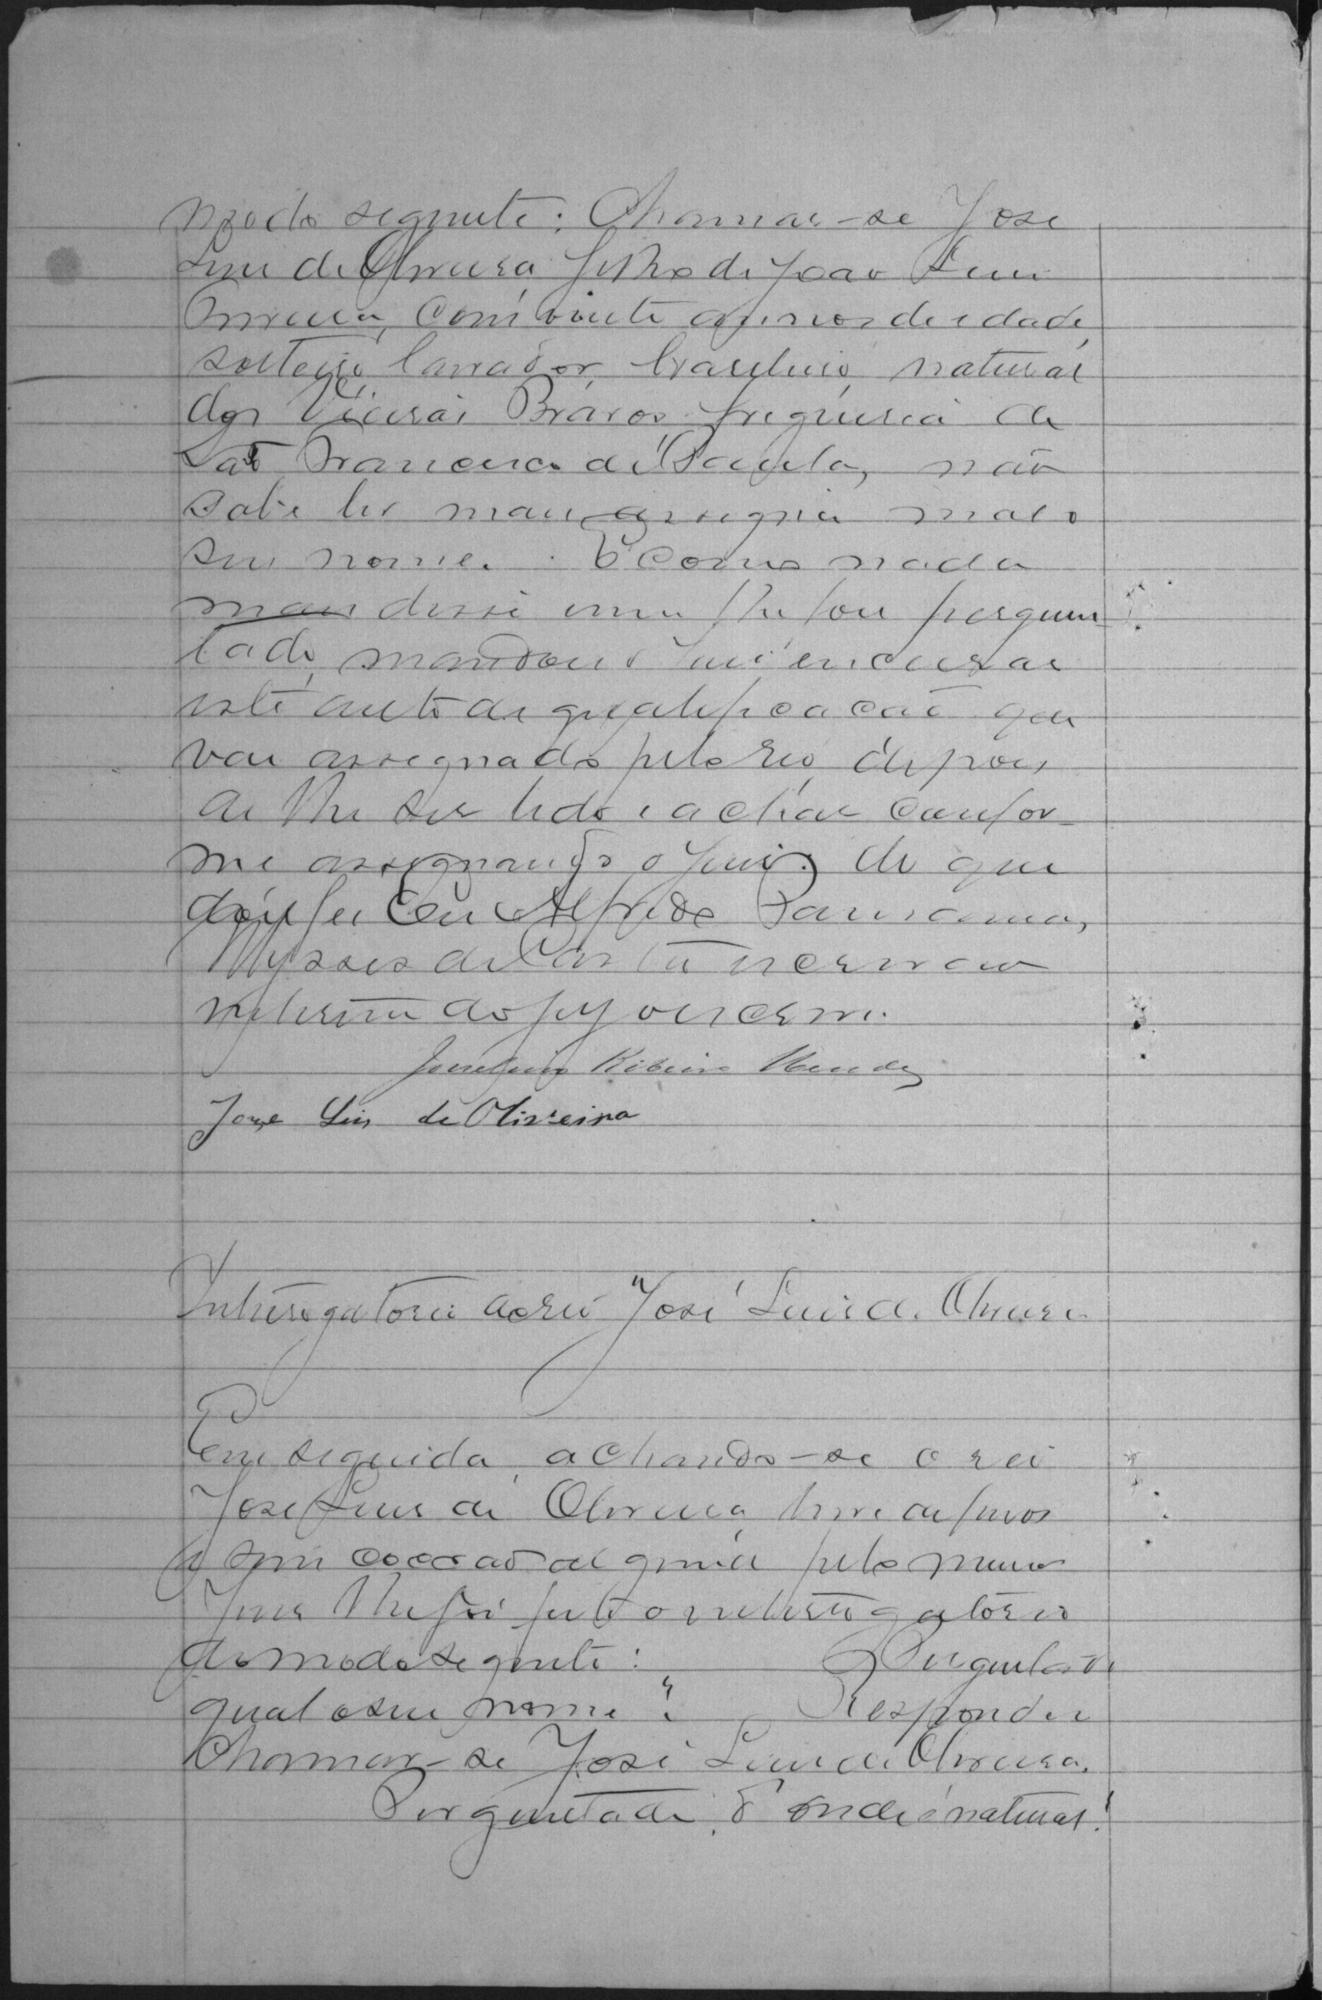 modo seguinte: Chamar-se Jose
Luis de Oliveira, filho de Joao Luis
com vinte annos de edade,
solteiro, lavrador, brasileiro, natural
dos Bravos freguesia de
Sao Francisco de Paula, não
sabe ler mas assigna mal o
seu nome. E como nada
mais disse nem lhe foi pergun-
tado, mandou o Juiz encerrar
este auto de qualificacaõ que
vai assegnado pelo reo depois
de lhe ser lido e achar confor-
me assegnando o Juiz, do que
dou fe. Eu Alfredo
Ulysses da Costa escrivaõ
interino do Jury o escrevi.
Joaquim Ribeiro Mendes
Jose Luis de Oliveira
Interrogatorio ao reo José Luis de Oliveira
Em seguida, achando-se o reo
Jose Luis de Oliveira livre de ferros
e sem coacçaõ alguma pelo mesmo
Juiz lhe foi feito o interrogatorio
do modo seguinte: Perguntado
qual o seu nome? Respondeu
Chamar-se José Luis de Oliveira.
Perguntado: d'onde é natural?